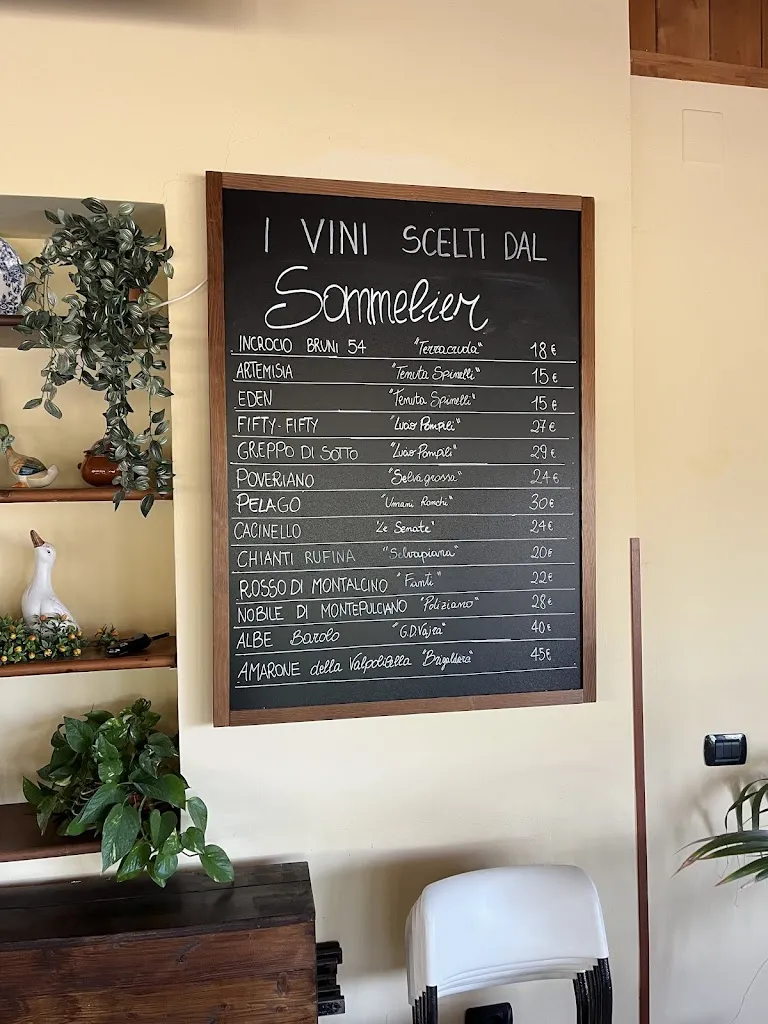 I VINI SCELTI DAL
Sommelier
INCROCIO BRUNI 54 "Terracruda" 18 €
ARTEMISIA "Tenuta Spinelli" 15 €
EDEN "Tenuta Spinelli" 15 €
FIFTY-FIFTY "Lucio Pompili" 27 €
GREPPO DI SOTTO "Lucio Pompili" 29 €
POVERIANO "Selvagrossa" 24 €
PELAGO "Umani Ronchi" 30 €
CACINELLO "Le Senate" 24 €
CHIANTI RUFINA "Selvapiana" 20 €
ROSSO DI MONTALCINO "Fanti" 22 €
NOBILE DI MONTEPULCIANO "Poliziano" 28 €
ALBE Barolo "G.D.Vajra" 40 €
AMARONE della Valpolicella "Brigaldara" 45 €